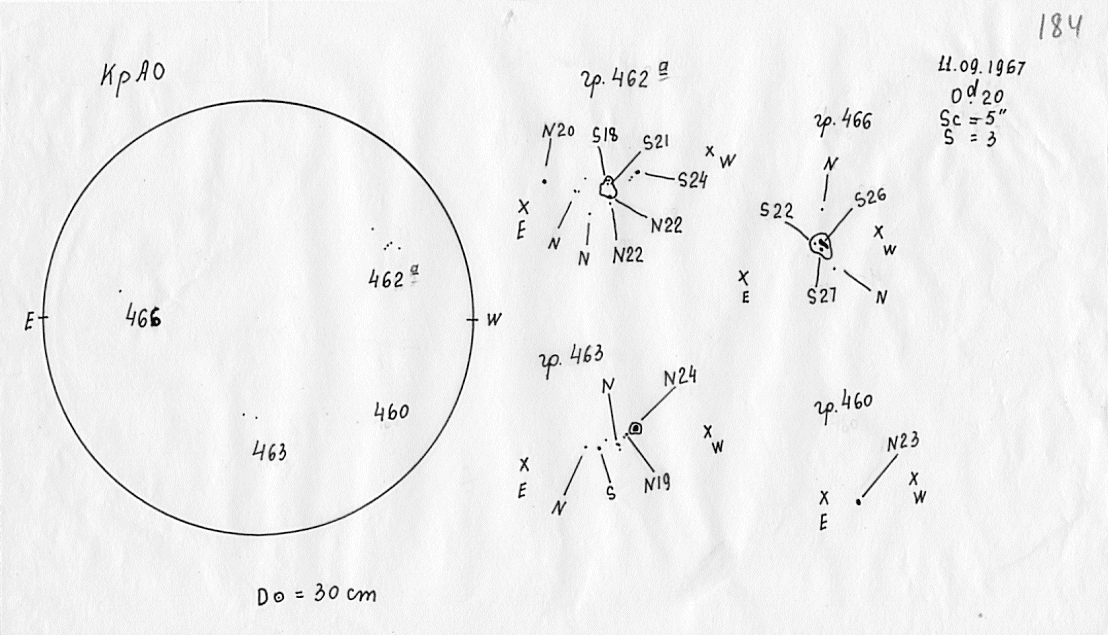 184
КрАО
гр. 462 а
11.09.1967
0d.20
Sc = 5"
S = 3
гр. 466
N20
S18
S21
S24
N22
N22
N
N
X
W
X
E
N
S22
S26
S27
N
X
W
X
E
462 а
466
E
W
460
463
гр. 463
N
N24
N19
S
N
X
W
X
E
гр. 460
N23
X
W
X
E
D⊙ = 30 cm